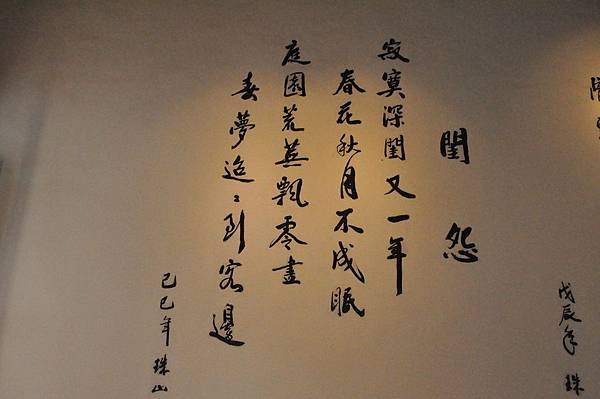 戊辰年 珠
閨怨
寂寞深閨又一年
春花秋月不成眠
庭園荒蕪飄零盡
春夢迢〻到客邊
己巳年 珠山